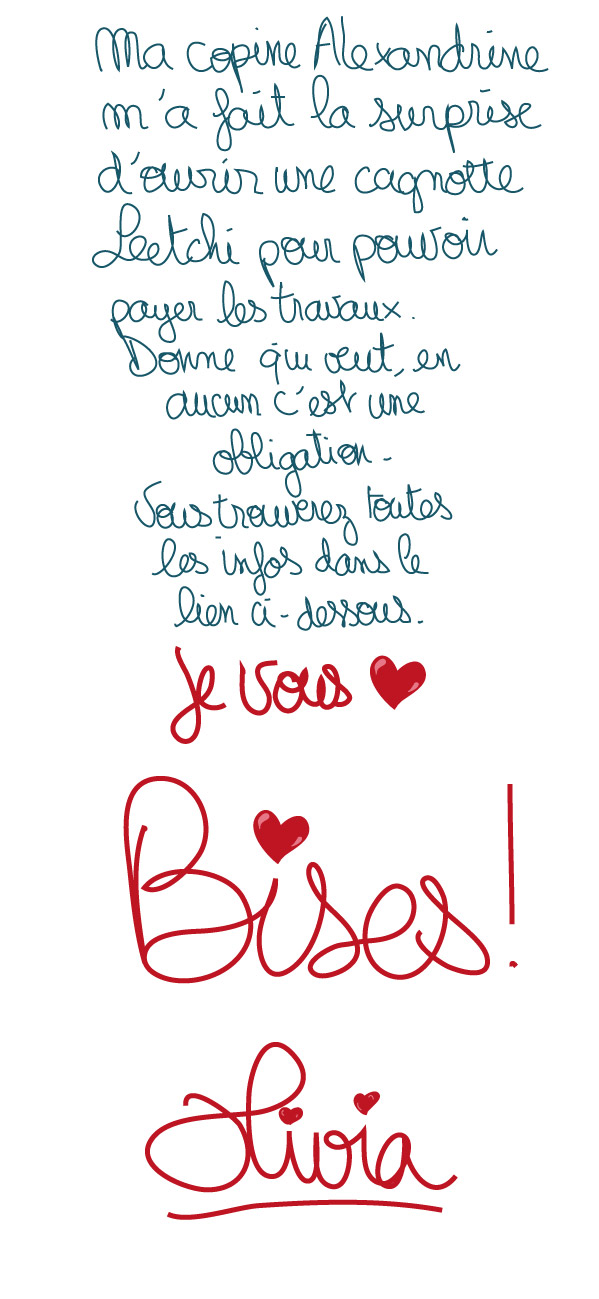 Ma copine Alexandrine
m'a fait la surprise
d'ouvrir une cagnotte
Leetchi pour pouvoir
payer les travaux.
Donne qui veut, en
aucun c'est une
obligation.
Vous trouverez toutes
les infos dans le
lien ci-dessous.
Je vous ♥
Bises!
Olivia